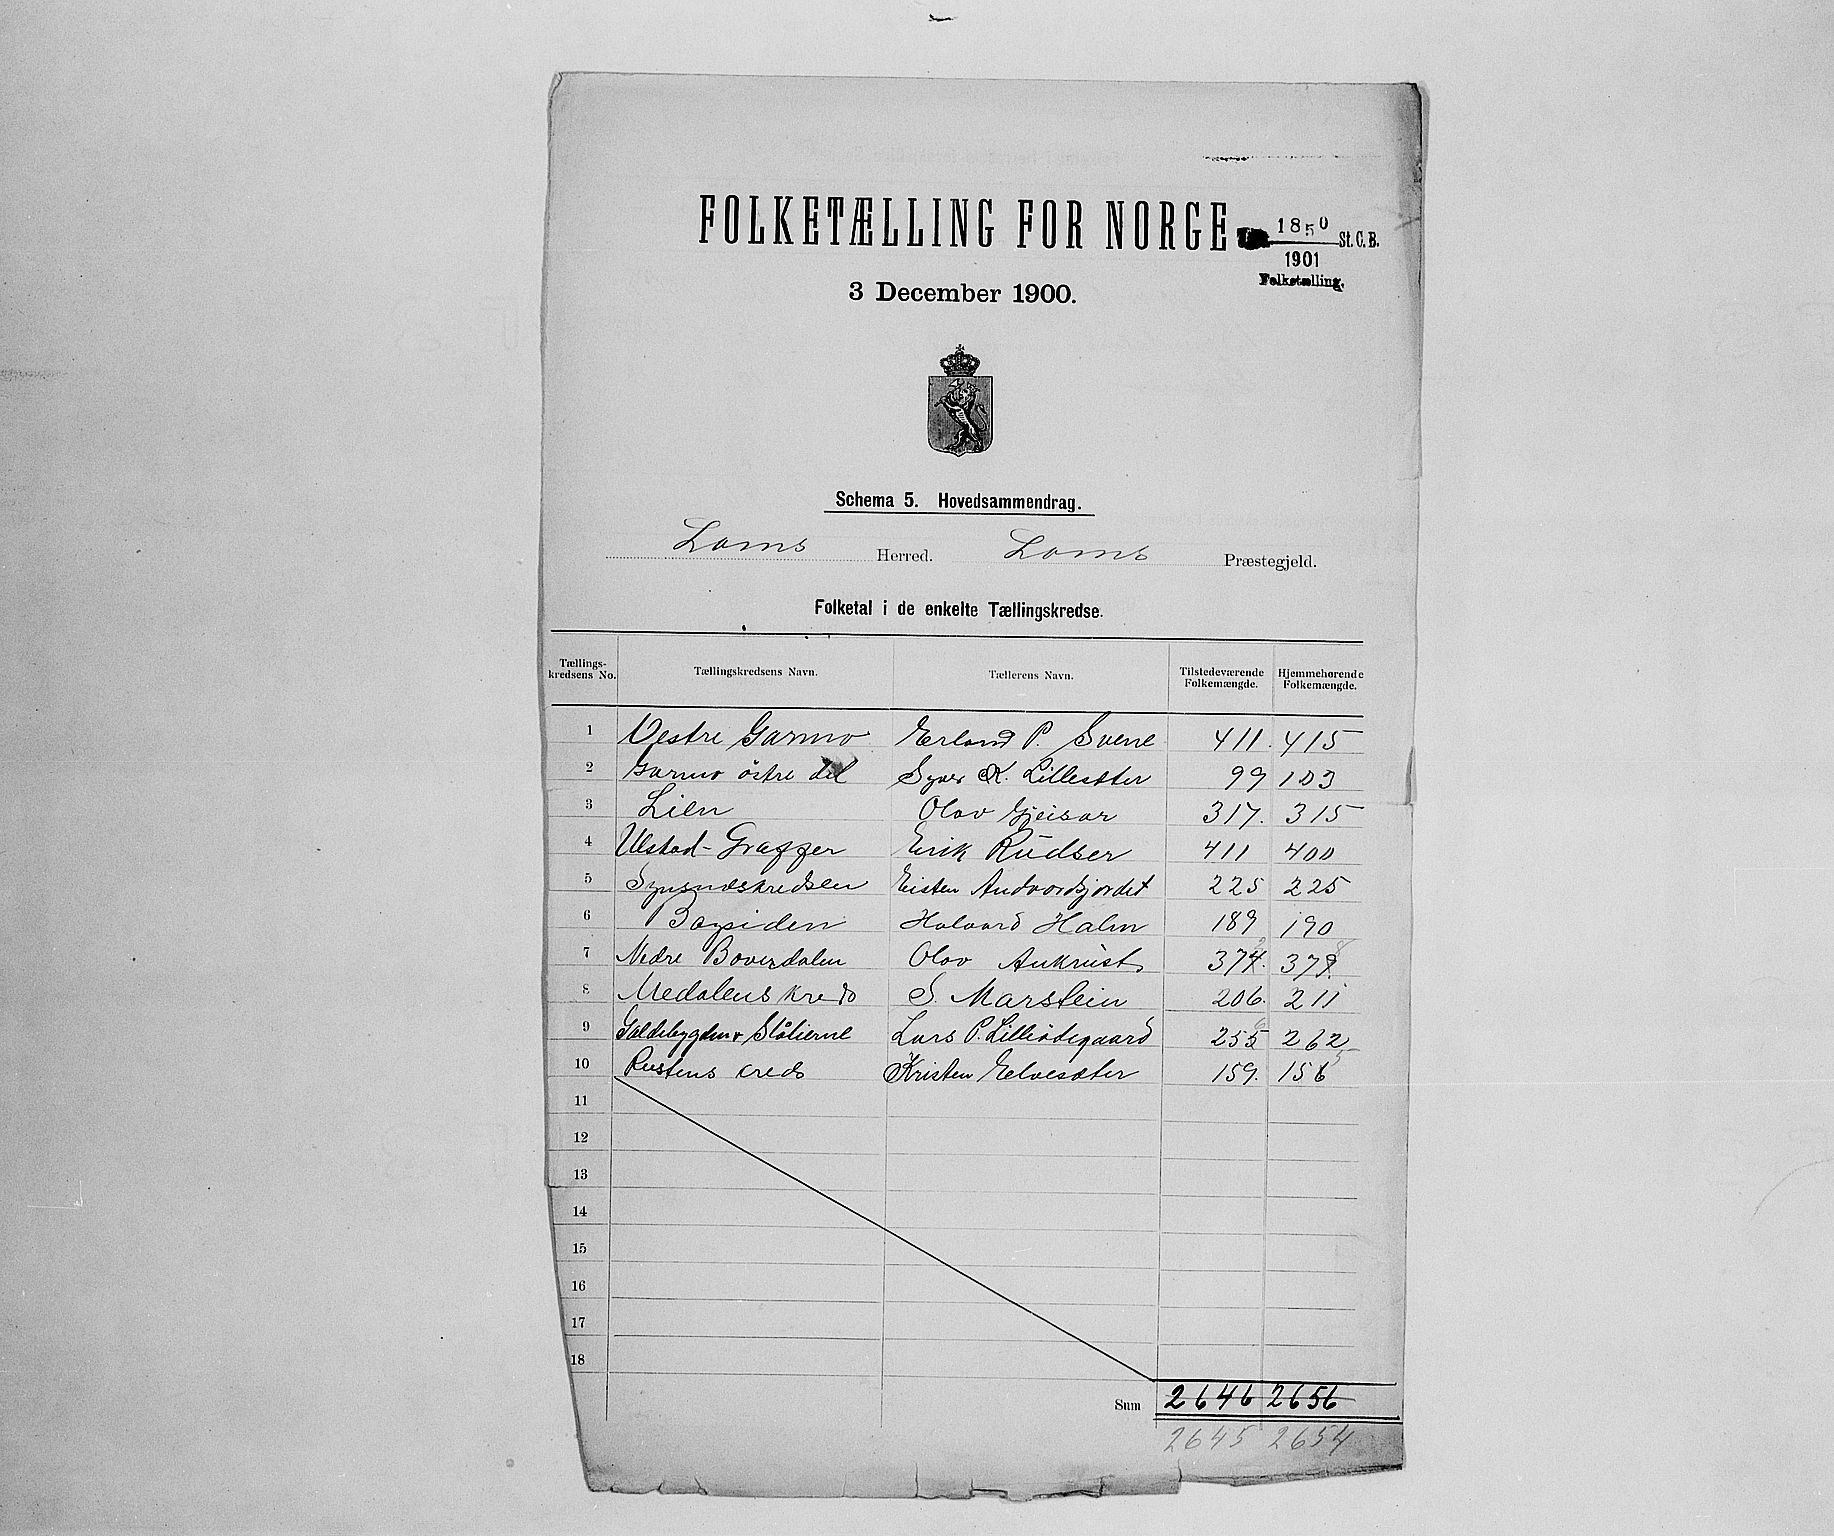 FOLKETÆLLING FOR NORGE
1850 St. C. B.
1901
Folketælling.
3 December 1900.
Schema 5. Hovedsammendrag.
Loms Herred. Loms Præstegjeld.
Folketal i de enkelte Tællingskredse.
Tællings-kredsens No. Tællingskredsens Navn. Tællerens Navn. Tilstedeværende Folkemængde. Hjemmehørende Folkemængde.
1 Vestre Garmo Erland P. Svene 411. 415
2 Garmo östre del Syver K. Lillesæter 99 103
3 Lien Olav Gjeisar 317. 315
4 Ulstad-Graffer Eirik Rudser 411 400
5 Synsnæskredsen Eisten Andvordsjordet 225 225
6 Bægsiden Halvard Halm 189 190
7 Nedre Boverdalen Olav Aukrust 374. 379
8 Medalens kreds S. Marstein 206. 211
9 Galdebygden & Stölierne Lars P. Lilleödegaard 255 262
10 Rustens kreds Kristen Elvesæter 159. 156
11
12
13
14
15
16
17
18
Sum 2646 2656
2645 2654